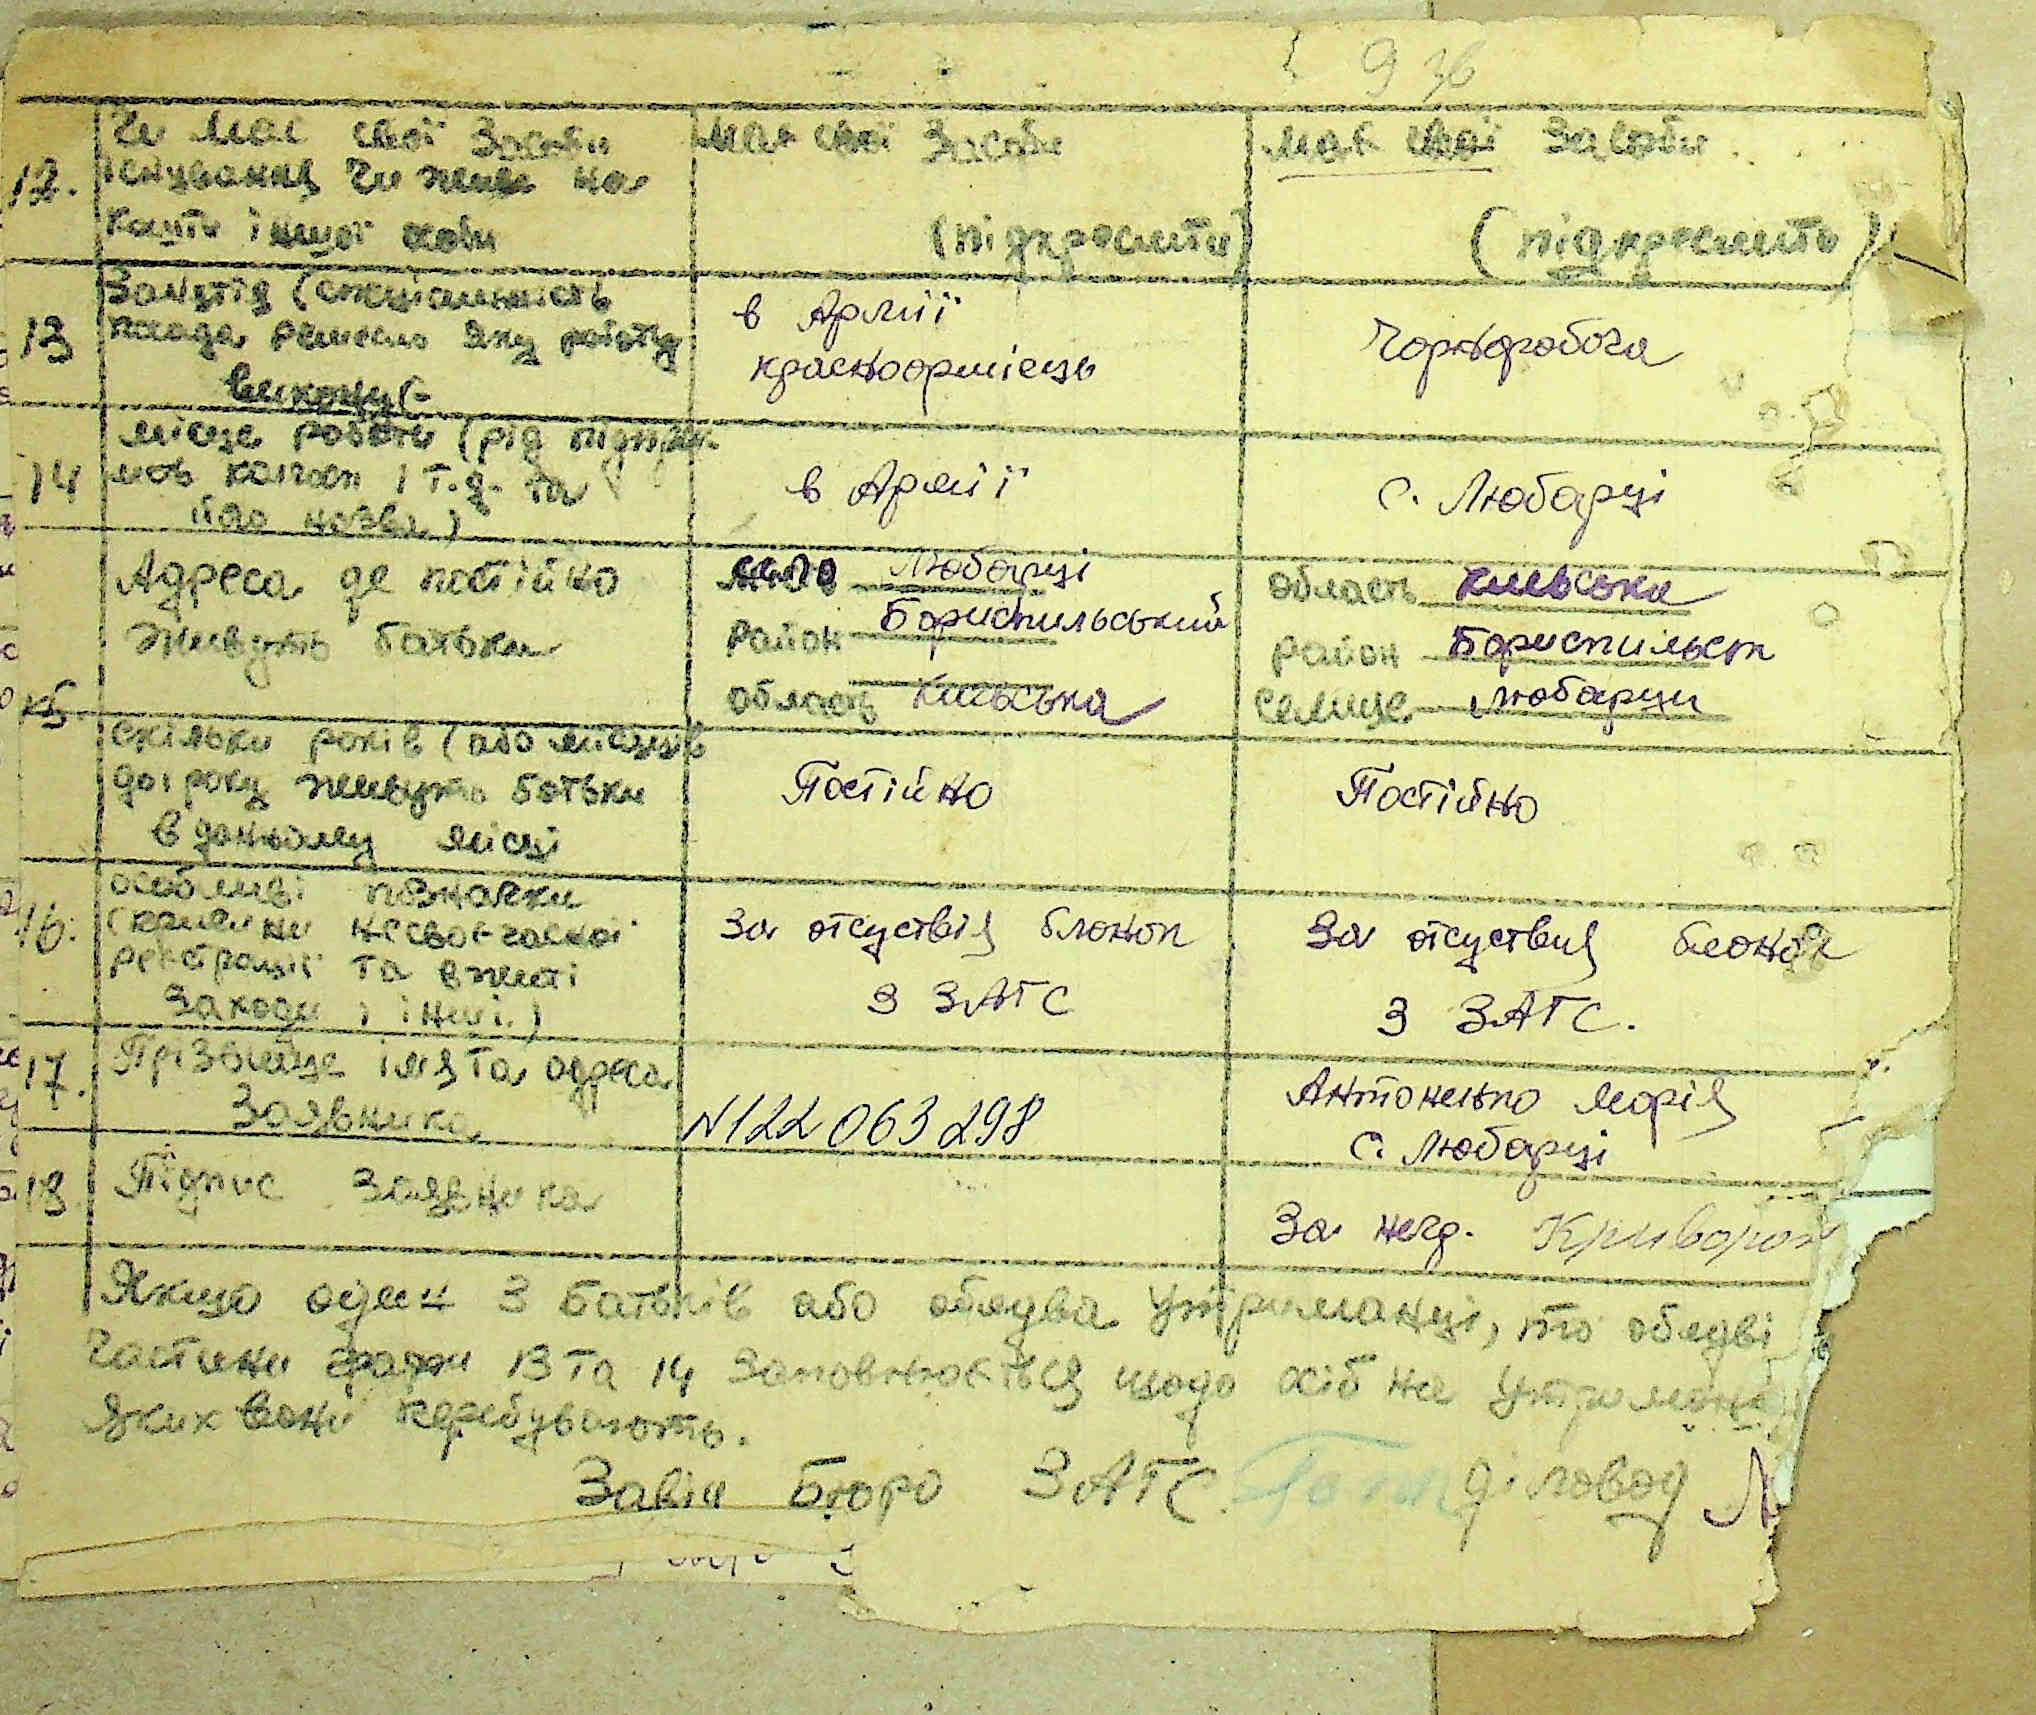 9 зв
12. Чи має свої засоби
існування чи живе на
кошти іншої особи
має свої засоби
(підкреслити)
має свої засоби
(підкреслить)
13 Заняття (спеціальність
посада ремесло яку роботу
виконує
в Армії
красноармієць
Чорнфробоча
14 місце роботи (рід підприє-
і т.д. та
його назва)
в Армії
с. Любарці
15. Адреса де постійно
живуть батьки
село Любарці
район Бориспильський
область Київська
область Київська
район Бориспильськ
селище Любарци
скільки років (або місяців
до 1 року живуть батьки
в данному місці
Постійно
Постійно
16. особливі позначки
(причини несвоєчасної
реєстрації та вжиті
заходи, інші.)
За отсуствія бланок
З ЗАГС
За отсуствия бланок
З ЗАГС.
17. Прізвище імя та адреса
Заявника
N122 063298
Антоненко Марія
с. Любарці
18 Підпис заявника
За негр. Криворо
Якщо один з батьків або обидва утриманці, то обидві
частини графи 13 та 14 заповнюється щодо осіб на
яких вони перебувають.
Завід Бюро ЗАГС. діловод Л